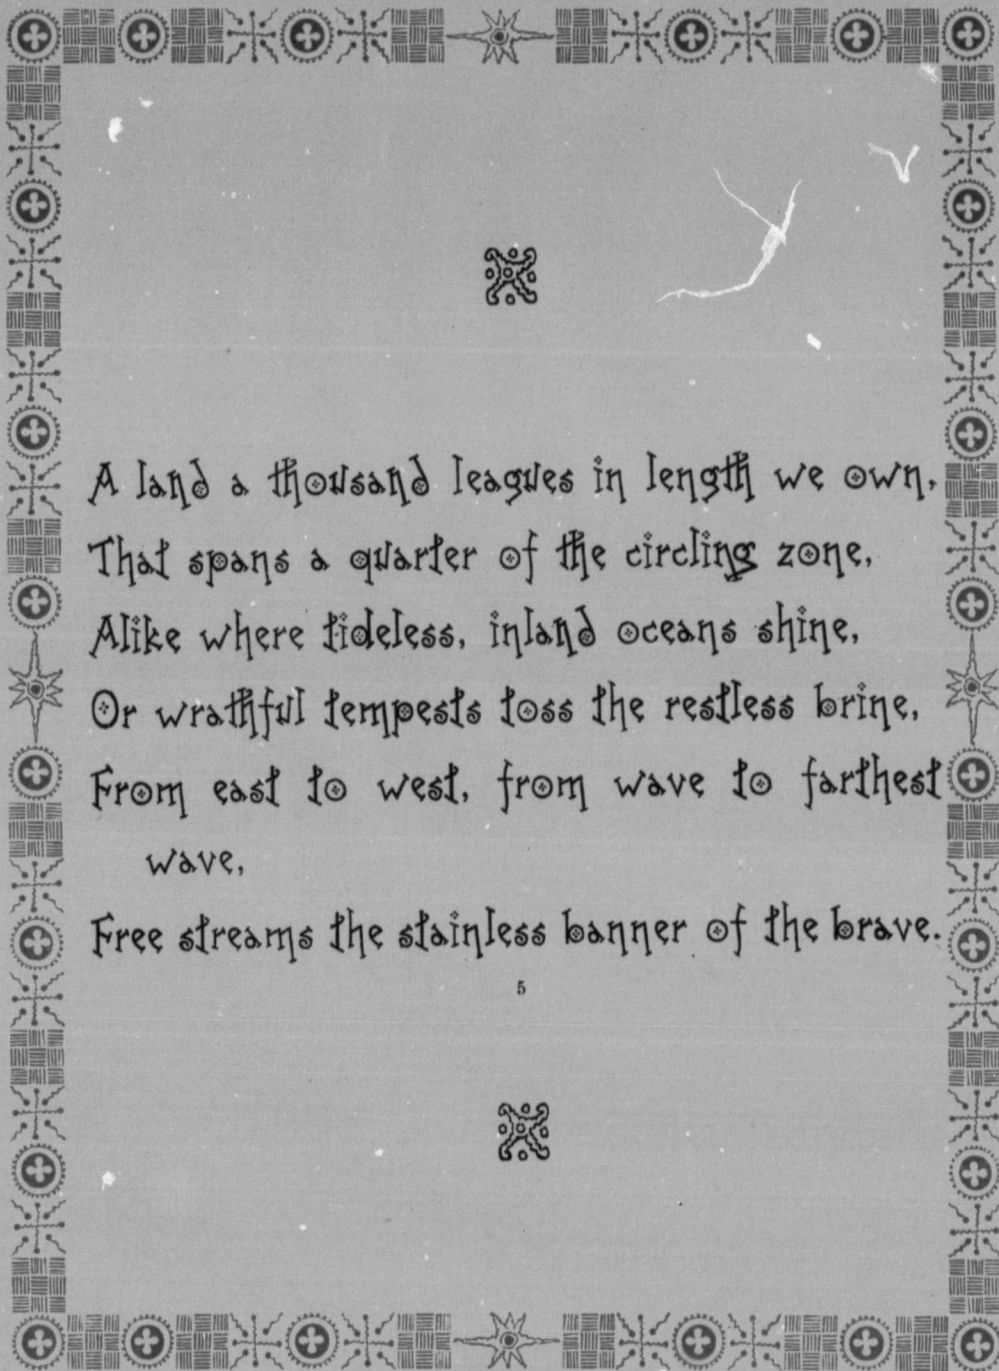 A land a thousand leagues in length we own,
That spans a quarter of the circling zone,
Alike where tideless, inland oceans shine,
Or wrathful tempests toss the restless brine,
From east to west, from wave to farthest
wave,
Free streams the stainless banner of the brave.
5